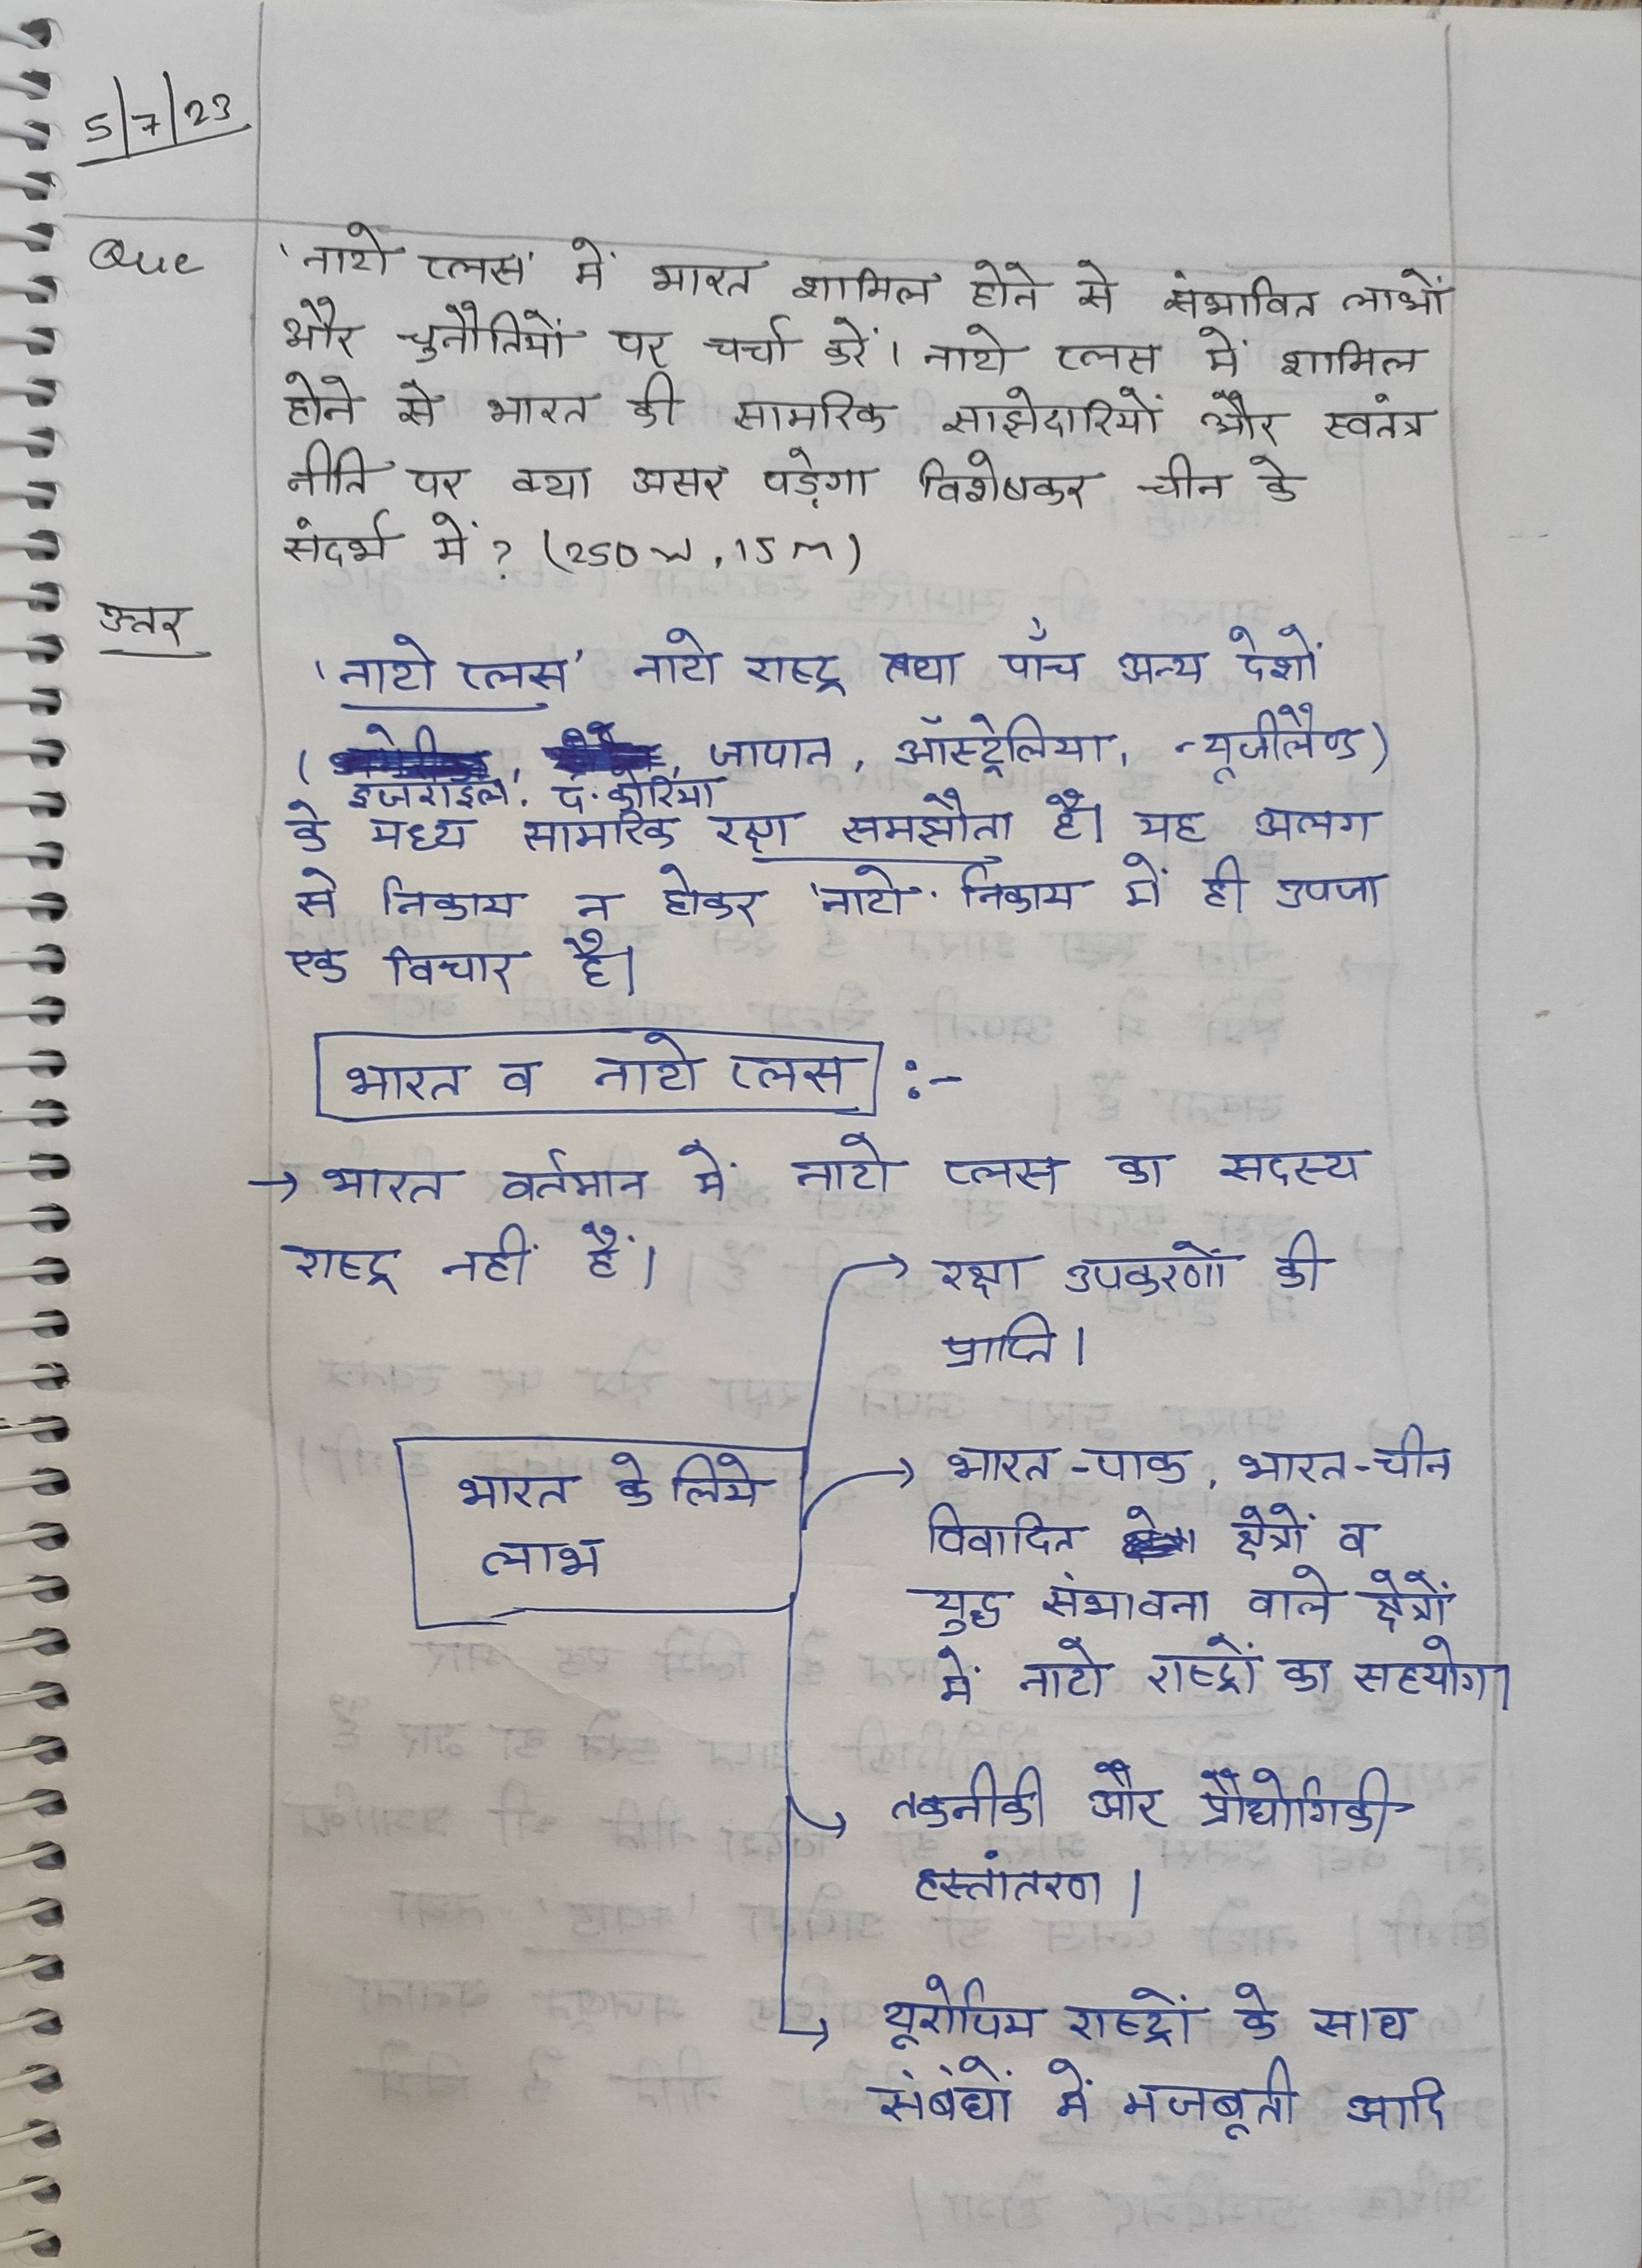 5/7/23
Que 'नाटो प्लस' में भारत शामिल होने से संभावित लाभों
और चुनौतियों पर चर्चा करें। नाटो प्लस में शामिल
होने से भारत की सामरिक साझेदारियों और स्वतंत्र
नीति पर क्या असर पड़ेगा विशेषकर चीन के
संदर्भ में? (250 w, 15 m)
उत्तर
'नाटो प्लस' नाटो राष्ट्र तथा पाँच अन्य देशों
( , , जापान, ऑस्ट्रेलिया, न्यूजीलैण्ड)
इजराइल, द. कोरिया
के मध्य सामरिक रक्षा समझौता है। यह अलग
से निकाय न होकर 'नाटो' निकाय में ही उपजा
एक विचार है।
भारत व नाटो प्लस :-
→ भारत वर्तमान में नाटो प्लस का सदस्य
राष्ट्र नहीं हैं।
भारत के लिये
लाभ
→ रक्षा उपकरणों की
प्राप्ति।
→ भारत-पाक, भारत-चीन
विवादित क्षेत्रों व
युद्ध संभावना वाले क्षेत्रों
में नाटो राष्ट्रों का सहयोग।
→ तकनीकी और प्रौद्योगिकी
हस्तांतरण।
→ यूरोपिय राष्ट्रों के साथ
संबंधों में मजबूती आदि